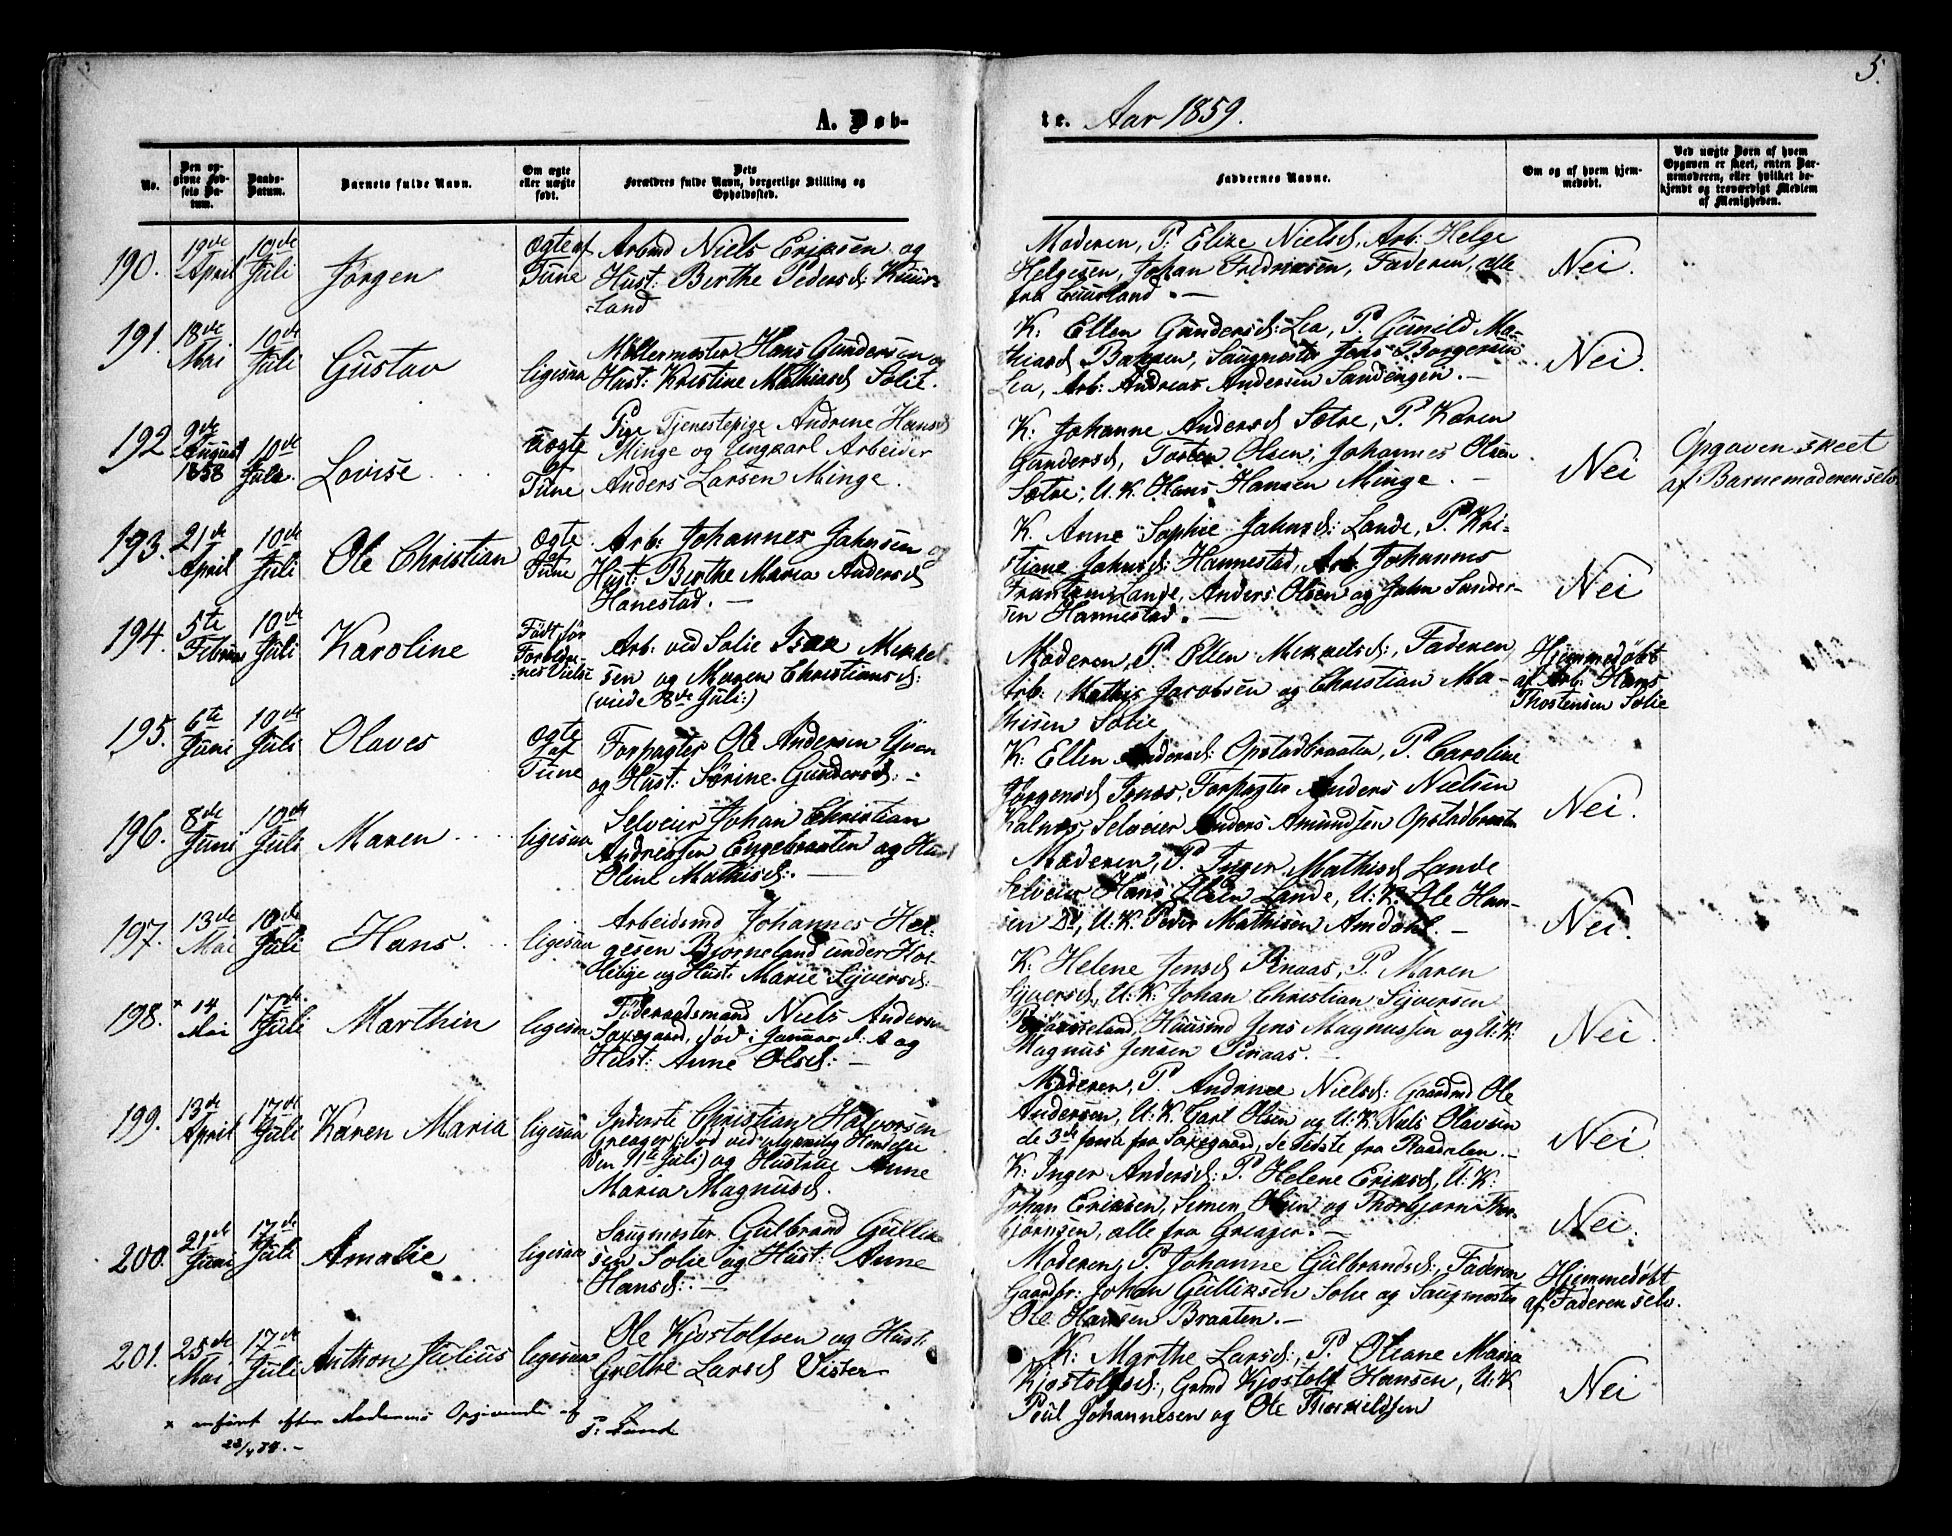 5.
A. Døb-
te. Aar 1859.
No.
Den op-
givne Fød-
sels Da-
tum.
Daabs-
Datum.
Barnets fulde Navn.
Om ægte
eller uægte
født.
Dets
Forældres fulde Navn, borgerlige Stilling og
Opholdssted.
Faddernes Navne.
Om og af hvem hjem-
medøbt.
Ved uægte Børn af hvem
Opgaven er skeet, enten Bar-
nemoderen, eller hvilket be-
kjendt og troværdigt Medlem
af Menigheden.
190. 19de April 10de Juli Jørgen Ægte af Tune
Arbmd Niels Eriksen og
Hust: Berthe Pedersd:
land
Moderen, P: Elize Nielsd, Arb: Helge
Helgesen, Johan Fredriksen, Faderen, alle
fra
Nei.
191. 18de Mai 10de Juli Gustav ligesaa
Møllermester Hans Gundersen og
Hust: Kristine Mathiasd Solie.
K: Ellen Gundersd: Lea, P. Gunild Ma-
thiasd Bakken, Saugmester Jens Borgersen
Lea, Arb: Andreas Andersen Sandengen. —
Nei.
192 9de August 1858 10de Juli Lovise Uægte af Tune
Pige Tjenestepige Andrine Hansd
Minge og Ungkarl Arbeider
Anders Larsen Minge.
K: Johanne Andersd Sætre, P. Karen
Gundersd, Olsen, Johannes Olsen
Sætre, U.K. Hans Hansen Minge. —
Nei
Opgaven skeet
af Barnemoderen selv.
193. 21de April 10de Juli Ole Christian Ægte af Tune
Arb: Johannes Jahnsen og
Hust: Berthe Maria Andersd
Hanestad. —
K. Anne Sophie Jahnsd: Lande, P. Kri-
stiane Jahnsd: Hannestad, Arb: Johannes
Frantzen Lande, Anders Olsen og Jahn Sander-
sen Hannestad. —
Nei
194. 5te Februar 10de Juli Karoline Født før Forældre-
nes Vielse
Arb: ved Solie Isak Mikkel-
sen og Maren Christiansd:
(viede 8de Juli:)
Moderen, P. Ellen Mikkelsd:, Faderen,
Arb: Mathis Jacobsen og Christian Ma-
thisen Solie
Hjemmedøbt
af Arb: Hans
Thostensen Solie
195. 6te Juni 10de Juli Olaves Ægte af Tune
Forpagter Ole Andersen
og Hust: Sørine Gundersd: —
K: Ellen Andersd: Opstadbraaten, P. Caroline
Jørgensd Forpagter Anders Nielsen
Kalnæs, Selveier Anders Amundsen Opstadbraaten
Nei.
196. 8de Juni 10de Juli Maren ligesaa
Selveier Johan Christian
Andreasen Engebraaten og Hust
Oline Mathisd: —
Moderen, P. Inger Mathisd Lande
Selveier Hans Olsen Lande, U.K. Ole Han-
sen Do, U.K. Peder Mathisen Amdahl. —
Nei.
197. 13de Mai 10de Juli Hans. ligesaa
Arbeidsmd Johannes Hel-
gesen Bjørneland under
og Hust. Marie Syversd: —
K: Helene Jensd Pinaas, P. Maren
Syversd, U.K. Johan Christian Syversen
Bjørneland, Huusmd Jens Magnussen og U.K.
Magnus Jensen Pinaas. —
Nei.
198. × 14 Mai 17de Juli Marthin ligesaa
Føderaadsmand Niels Andersen
Saxegaard, død i Januar d: A og
Hust: Anne Olsd: —
Moderen, P. Andrine Nielsd: Gaardmd Ole
Andersen, U.K. Carl Olsen og U.K. Niels Olavsen
de 3de første fra Saxegaard, de sidste fra Raadelen. —
Nei
199. 13de April 17de Juli Karen Maria ligesaa
Inderste Christian Halvorsen
Greager (død ved ulykkelig Hændelse
den 11te Juli) og Hustrue Anne
Maria Magnusd.
K: Inger Andersd: P. Helene Eriksd, U.K.
Johan Eriksen, Simen Olsen og Thorbjørn Tor-
bjørnsen, alle fra Greager. —
Nei.
200. 21de Juni 17de Juli Amalie ligesaa
Saugmester Gulbrand Gullik-
sen Solie og Hust: Anne
Hansd: —
Moderen, P. Johanne Gulbrandsd:, Faderen
Gaardbr: Johan Gulliksen Solie og Saugmester
Ole Hansen Braaten. —
Hjemmedøbt
af Faderen selv.
201. 25de Mai 17de Juli Anthon Julius ligesaa
Ole Kjostolfsen og Hust:
Grethe Larsd Vister
K: Marthe Larsd:, P. Oliane Maria
Kjostolfsd:, Grmd Kjostolf Hansen, U.K.
Poul Johannesen og Ole Thorkildsen
Nei
× anført efter Moderens Opgivende af
S: Lund
23/4 74. —